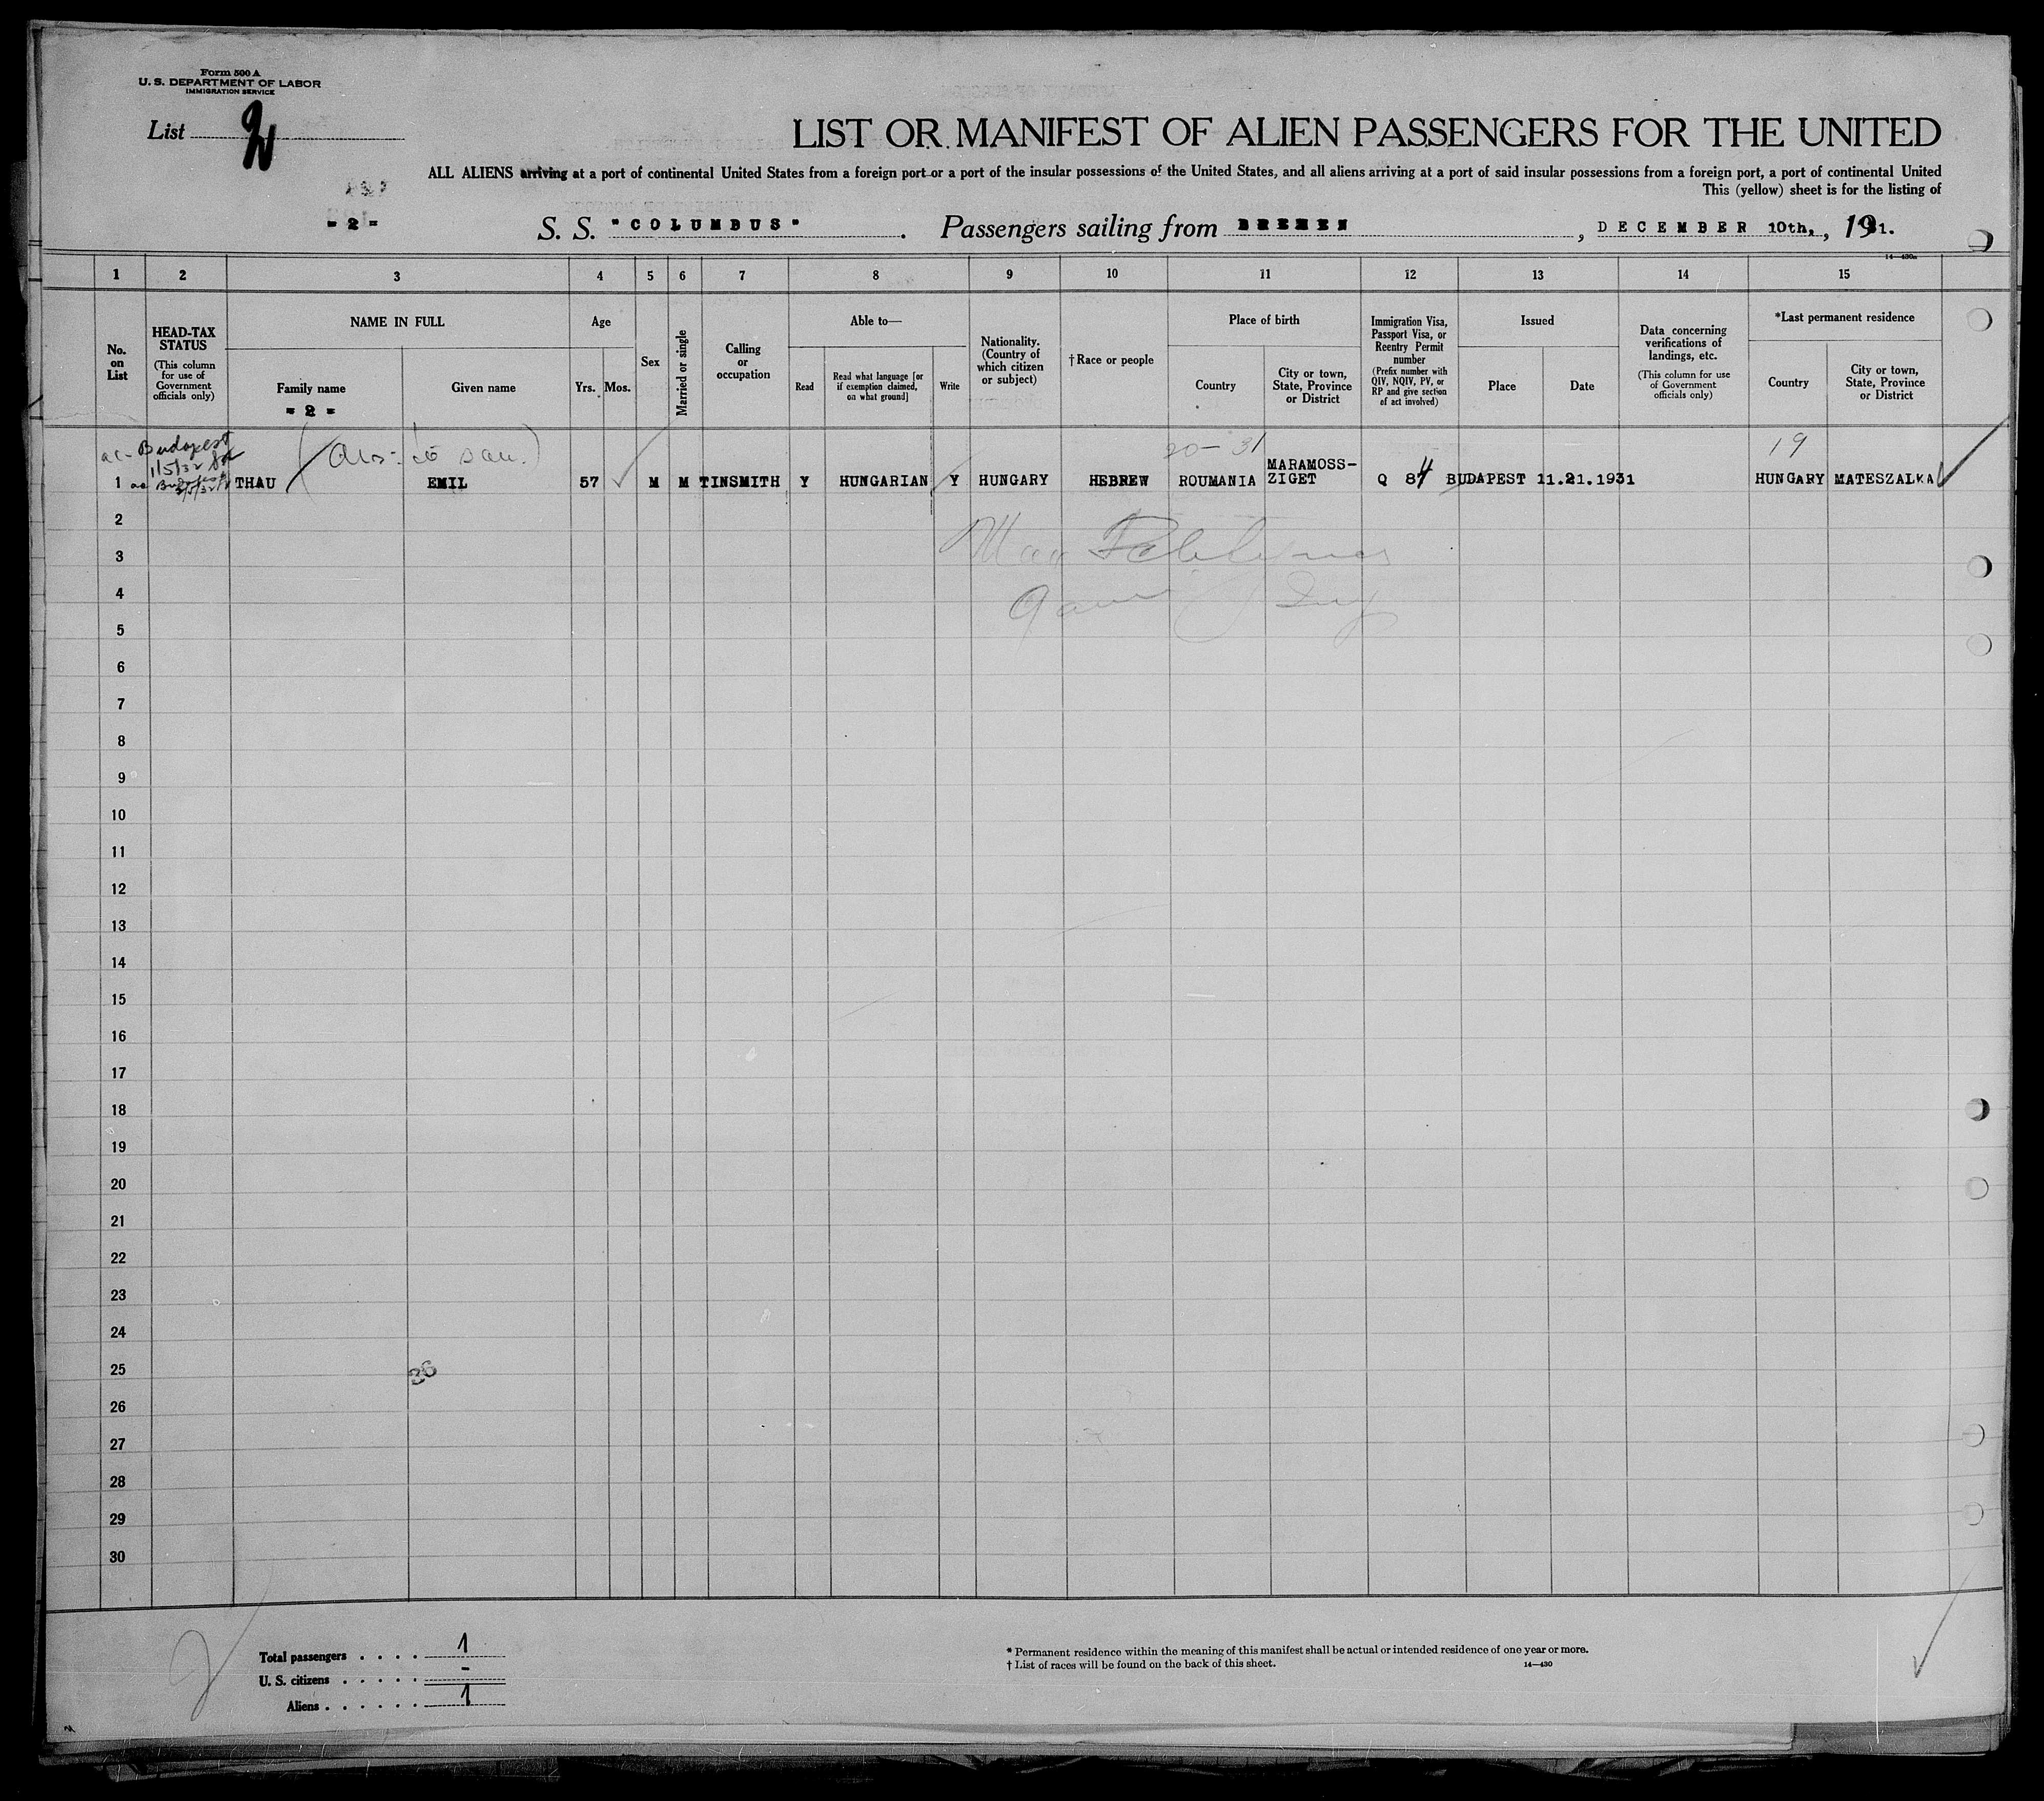 Form 500 A
U. S. DEPARTMENT OF LABOR
IMMIGRATION SERVICE
List 2
LIST OR MANIFEST OF ALIEN PASSENGERS FOR THE UNITED
ALL ALIENS arriving at a port of continental United States from a foreign port or a port of the insular possessions of the United States, and all aliens arriving at a port of said insular possessions from a foreign port, a port of continental United
This (yellow) sheet is for the listing of
- 2 -
S. S. "COLUMBUS" . Passengers sailing from BREMEN , DECEMBER 10th, , 1931.
14—430a
1 2 3 4 5 6 7 8 9 10 11 12 13 14 15
No. on List
HEAD-TAX STATUS
(This column for use of Government officials only)
NAME IN FULL
Family name
- 2 -
Given name
Age
Yrs. Mos.
Sex
Married or single
Calling or occupation
Able to—
Read
Read what language [or if exemption claimed, on what ground]
Write
Nationality. (Country of which citizen or subject)
†Race or people
Place of birth
Country
City or town, State, Province or District
Immigration Visa, Passport Visa, or Reentry Permit number
(Prefix number with QIV, NQIV, PV, or RP and give section of act involved)
Issued
Place
Date
Data concerning verifications of landings, etc.
(This column for use of Government officials only)
*Last permanent residence
Country
City or town, State, Province or District
Budapest
1/5/32
20- 31
19
1 THAU EMIL 57 M M TINSMITH Y HUNGARIAN Y HUNGARY HEBREW ROUMANIA MARAMOSS-ZIGET Q 84 BUDAPEST 11.21.1931 HUNGARY MATESZALKA
2
3
4
5
6
7
8
9
10
11
12
13
14
15
16
17
18
19
20
21
22
23
24
25
36
26
27
28
29
30
Total passengers . . . . 1
U. S. citizens . . . . . -
Aliens . . . . . . 1
* Permanent residence within the meaning of this manifest shall be actual or intended residence of one year or more.
† List of races will be found on the back of this sheet.
14—430